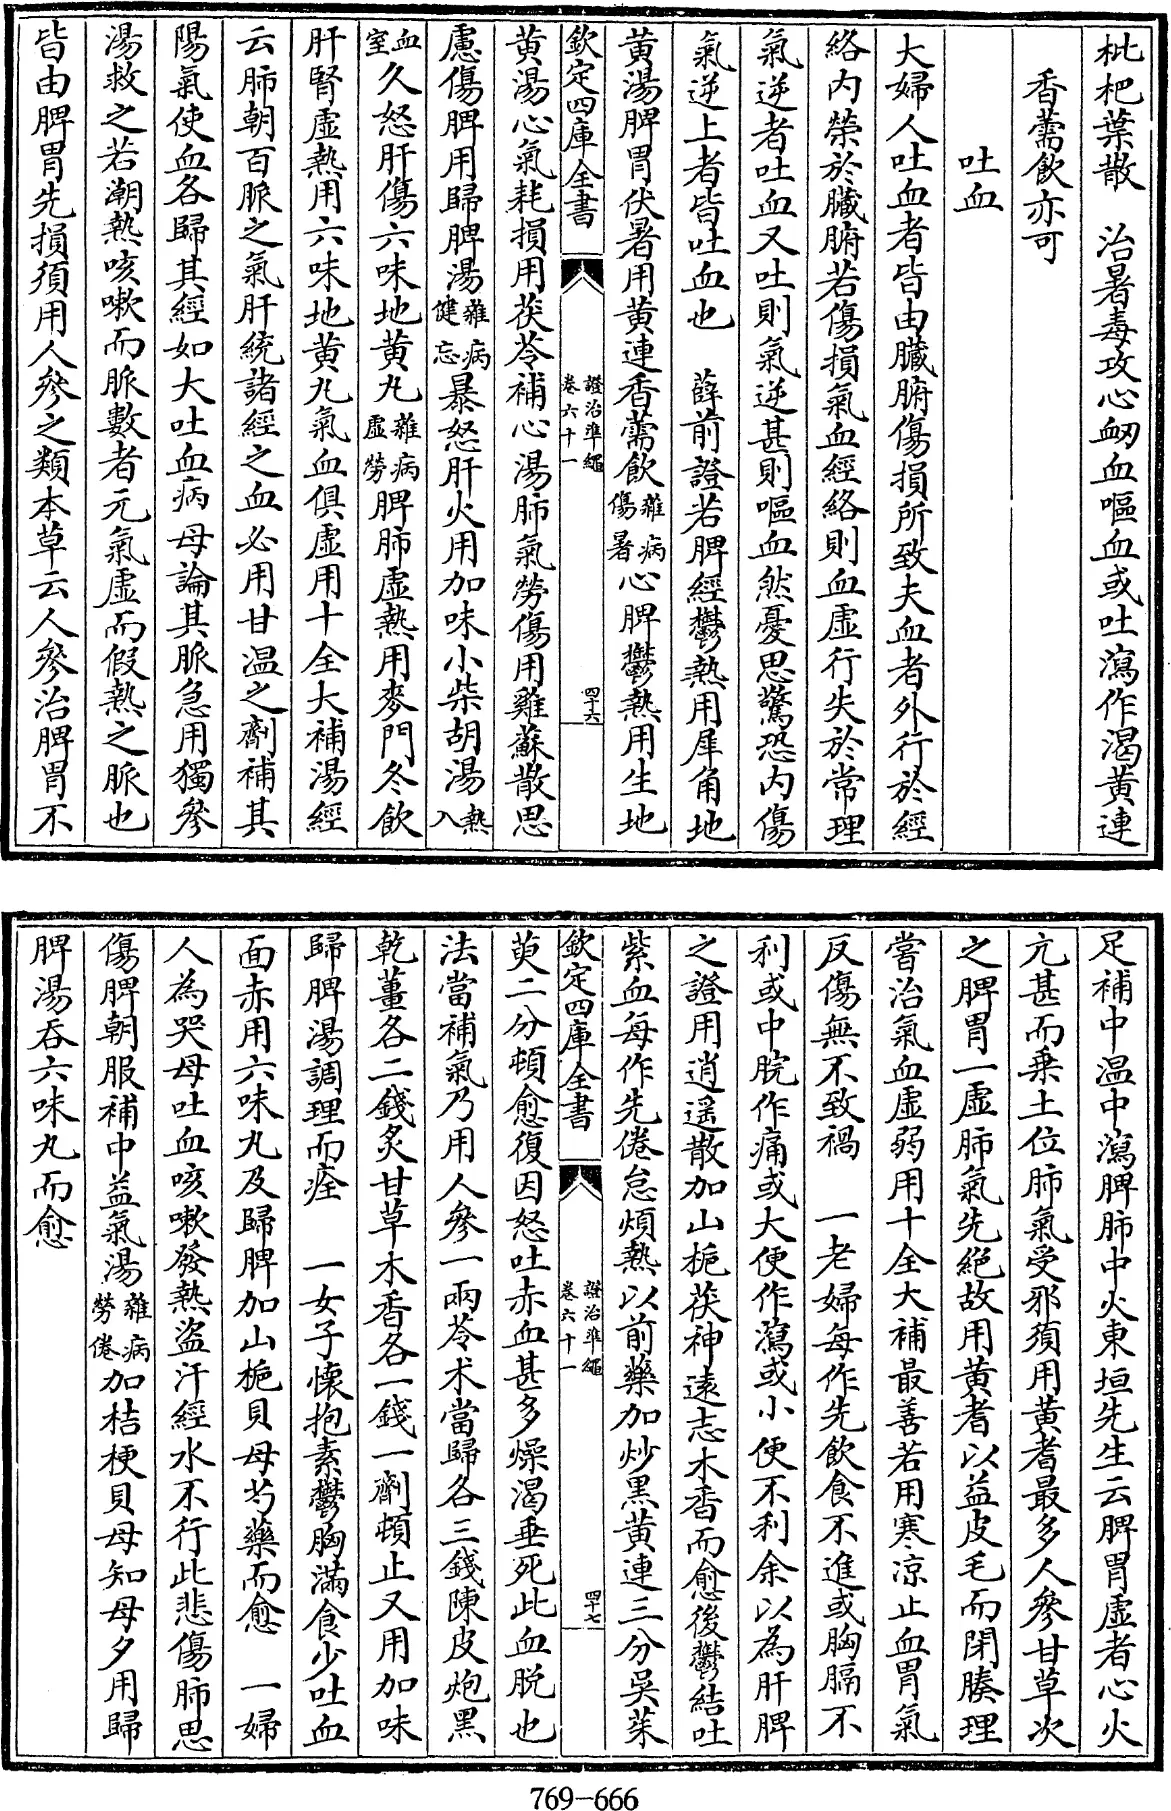 枇杷葉散　治暑毒攻心衂血嘔血或吐瀉作渴黄連
香薷飲亦可
吐血
大婦人吐血者皆由臓腑傷損所致夫血者外行於經
絡内榮於臓腑若傷損氣血經絡則血虛行失於常理
氣逆者吐血又吐則氣逆甚則嘔血然憂思驚恐内傷
氣逆上者皆吐血也　薛前證若脾經鬱熱用犀角地
黄湯脾胃伏暑用黄連香薷飲雜病傷暑心脾鬱熱用生地
欽定四庫全書　證治準繩卷六十一　四十六
黄湯心氣耗損用茯苓補心湯肺氣勞傷用雞蘇散思
慮傷脾用歸脾湯雜病健忘暴怒肝火用加味小柴胡湯熱入
血室久怒肝傷六味地黄丸雜病虛勞脾肺虛熱用麥門冬飲
肝腎虛熱用六味地黄丸氣血俱虛用十全大補湯經
云肺朝百脈之氣肝統諸經之血必用甘温之劑補其
陽氣使血各歸其經如大吐血病毋論其脈急用獨參
湯救之若潮熱咳嗽而脈數者元氣虛而假熱之脈也
皆由脾胃先損須用人參之類本草云人參治脾胃不
足補中温中瀉脾肺中火東垣先生云脾胃虛者心火
亢甚而乗土位肺氣受邪須用黄耆最多人參甘草次
之脾胃一虛肺氣先絕故用黄耆以益皮毛而閉腠理
嘗治氣血虛弱用十全大補最善若用寒凉止血胃氣
反傷無不致禍　一老婦每作先飲食不進或胸膈不
利或中脘作痛或大便作瀉或小便不利余以為肝脾
之證用逍遥散加山梔茯神遠志木香而愈後鬱結吐
紫血每作先倦怠煩熱以前藥加炒黑黄連三分吳茱
欽定四庫全書　證治準繩卷六十一　四十七
萸二分頓愈復因怒吐赤血甚多燥渴垂死此血脱也
法當補氣乃用人參一兩苓术當歸各三錢陳皮炮黑
乾薑各二錢炙甘草木香各一錢一劑頓止又用加味
歸脾湯調理而痊　一女子懷抱素鬱胸滿食少吐血
面赤用六味丸及歸脾加山梔貝母芍藥而愈　一婦
人為哭母吐血咳嗽發熱盜汗經水不行此悲傷肺思
傷脾朝服補中益氣湯雜病勞倦加桔梗貝母知母夕用歸
脾湯吞六味丸而愈
769-666